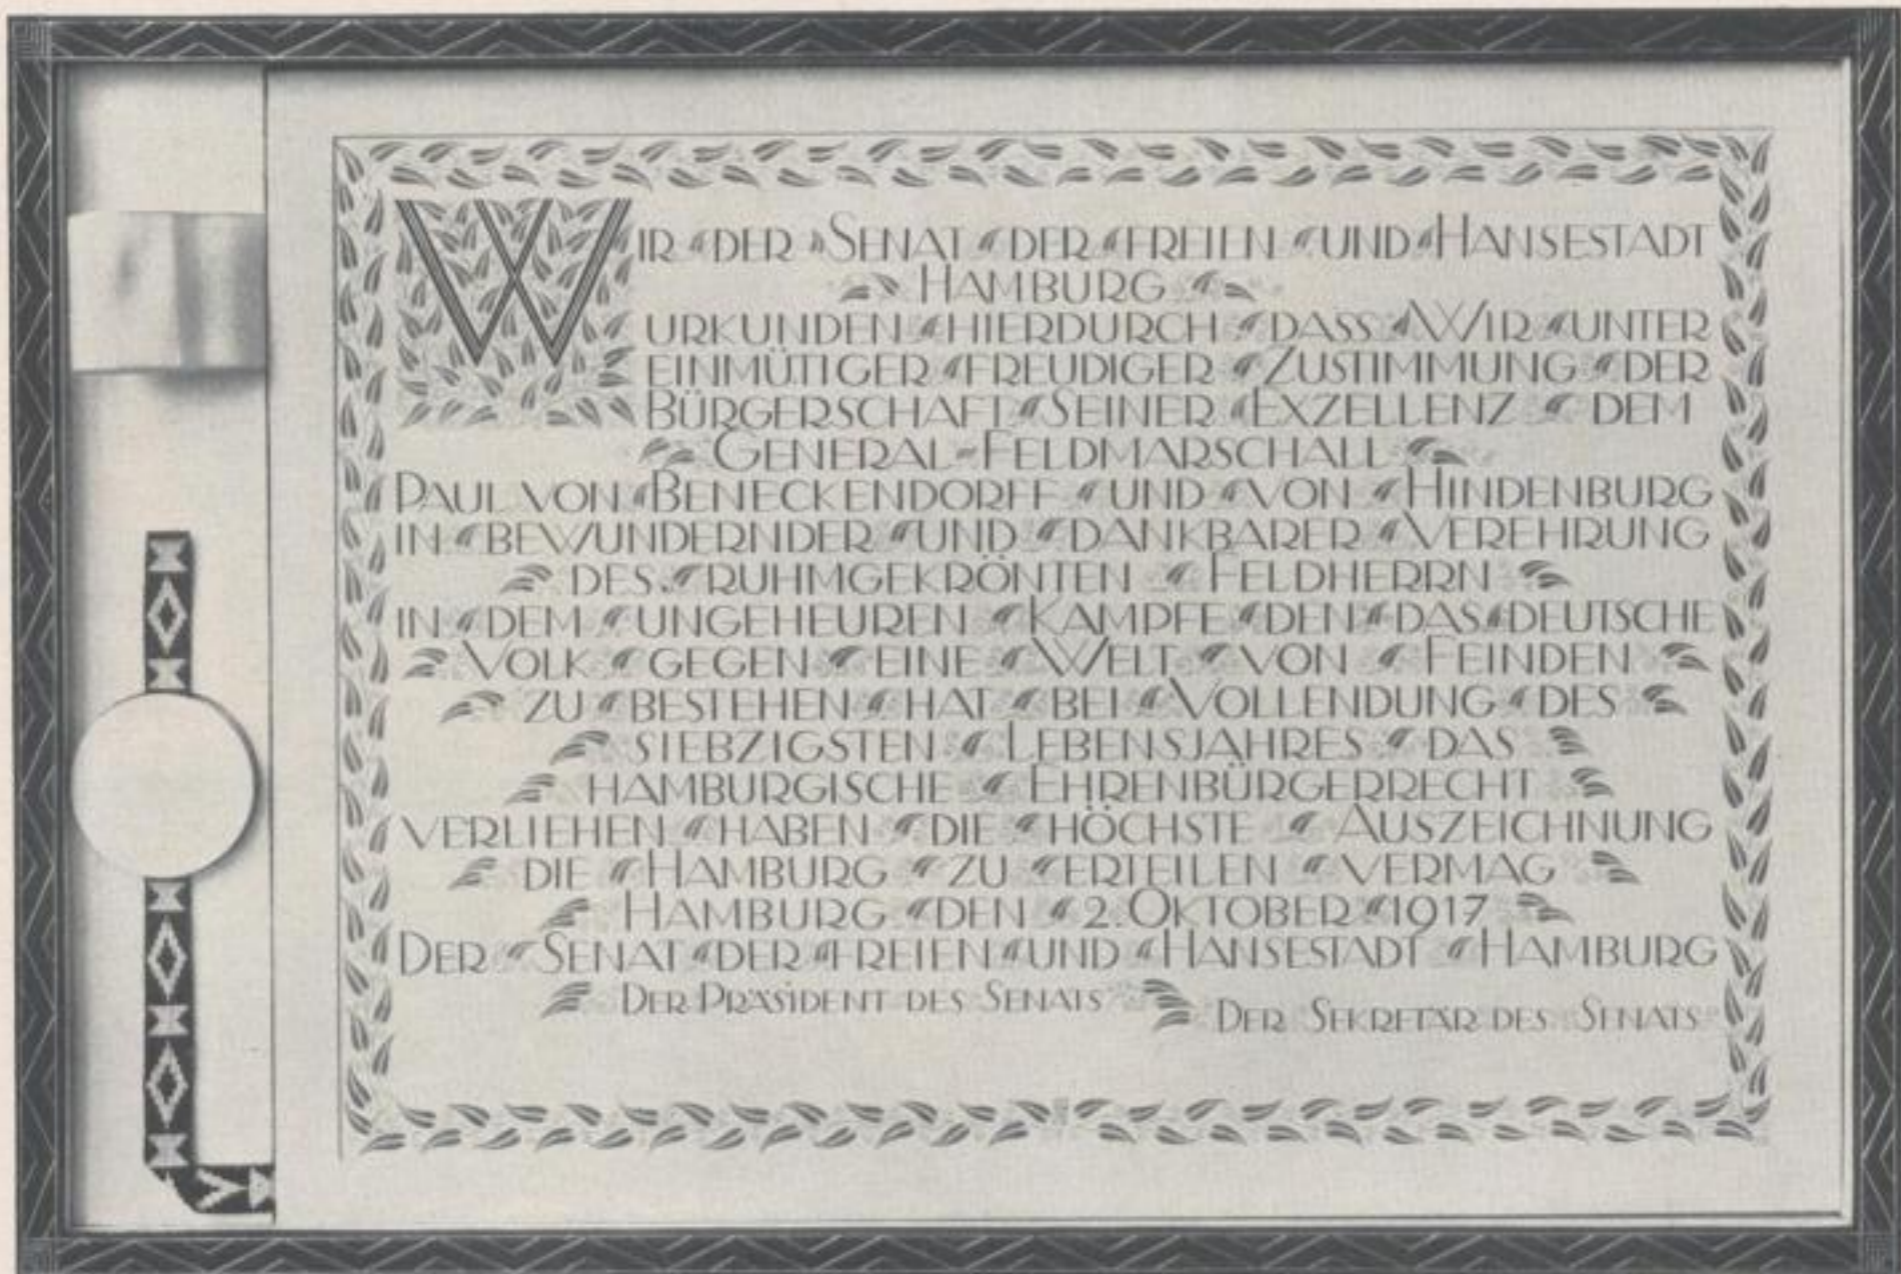 WIR DER SENAT DER FREIEN UND HANSESTADT
HAMBURG
URKUNDEN HIERDURCH DASS WIR UNTER
EINMÜTIGER FREUDIGER ZUSTIMMUNG DER
BÜRGERSCHAFT SEINER EXZELLENZ DEM
GENERAL-FELDMARSCHALL
PAUL VON BENECKENDORFF UND VON HINDENBURG
IN BEWUNDERNDER UND DANKBARER VEREHRUNG
DES RUHMGEKRÖNTEN FELDHERRN
IN DEM UNGEHEUREN KAMPFE DEN DAS DEUTSCHE
VOLK GEGEN EINE WELT VON FEINDEN
ZU BESTEHEN HAT BEI VOLLENDUNG DES
SIEBZIGSTEN LEBENSJAHRES DAS
HAMBURGISCHE EHRENBÜRGERRECHT
VERLIEHEN HABEN DIE HÖCHSTE AUSZEICHNUNG
DIE HAMBURG ZU ERTEILEN VERMAG
HAMBURG DEN 2. OKTOBER 1917
DER SENAT DER FREIEN UND HANSESTADT HAMBURG
DER PRÄSIDENT DES SENATS
DER SEKRETÄR DES SENATS